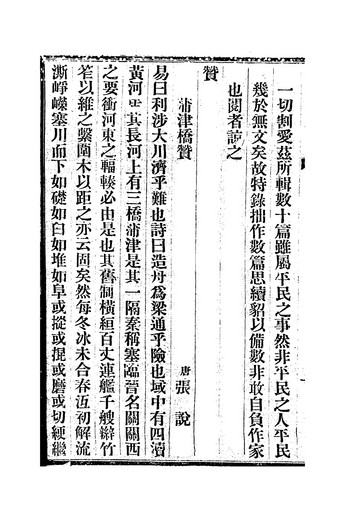 一切割愛茲所輯數十篇雖屬平民之事然非平民之人平民
幾於無文矣故特錄拙作數篇思續貂以備數非敢自負作家
也閱者諒之
贊
蒲津橋贊
唐張說
易曰利涉大川濟乎難也詩曰造舟為梁通乎險也域中有四瀆
黃河是其長河上有三橋蒲津是其一隔秦稱塞臨晉名關關西
之要衝河東之輻輳必由是也其舊制橫絙百丈連艦千艘辮竹
笮以維之繫圍木以距之亦云固矣然每冬冰未合春沍初解流
澌崢嶸塞川而下如礎如臼如堆如阜或摐或掍或磨或切綆繼